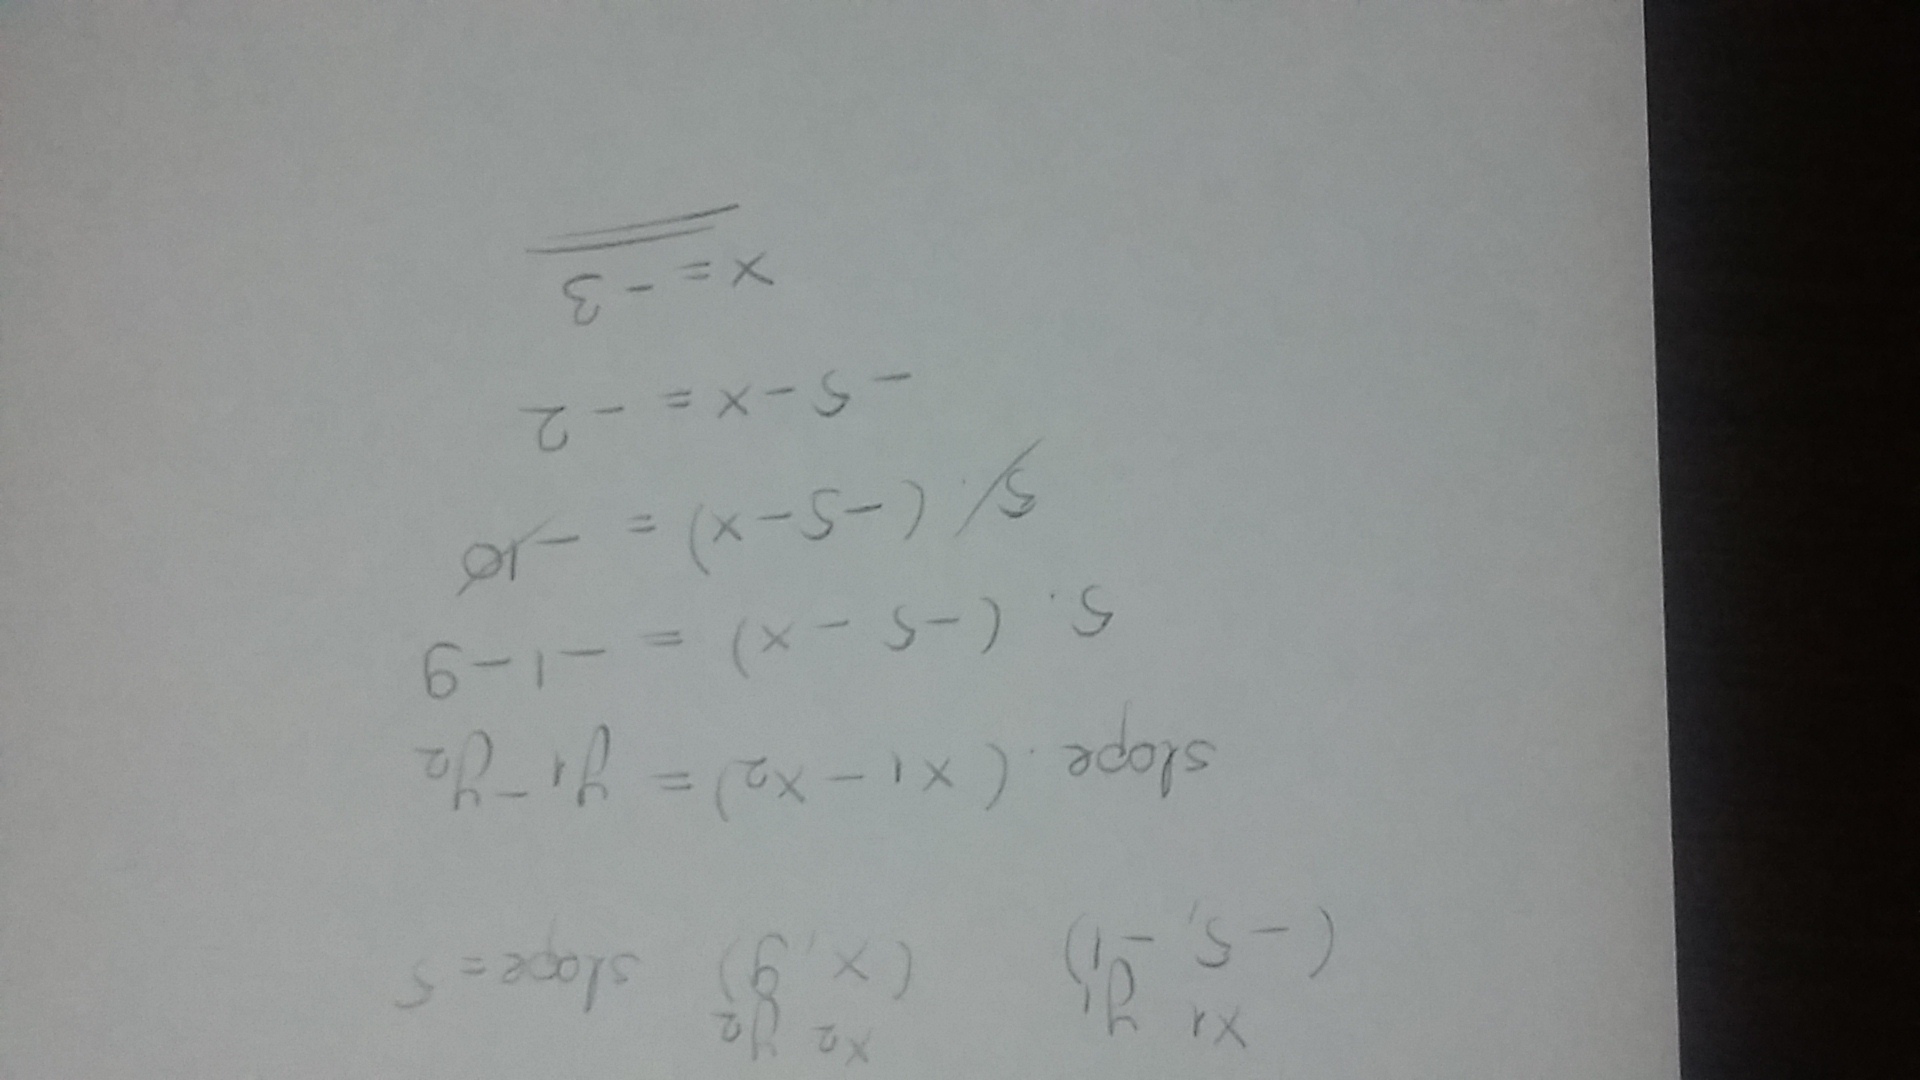 x1 y1 x2 y2
(-5, -1) (x, 9) slope = 5
slope . (x1 - x2) = y1 - y2
5 . (-5 - x) = -1 - 9
5 . (-5 - x) = -10
-5 - x = -2
x = -3